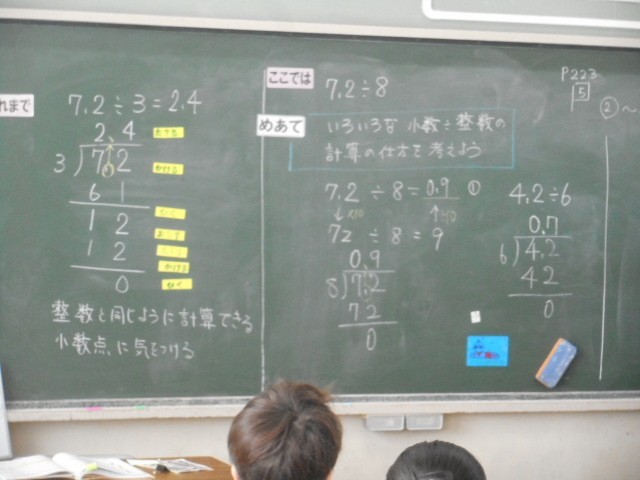 れまで
7.2÷3=2.4
2.4
3)7.2
6 1
1 2
1 2
0
たてる
かける
ひく
おろす
かける
ひく
整数と同じように計算できる
小数点に気をつける
ここでは
7.2÷8
めあて
いろいろな小数÷整数の
計算の仕方を考えよう
7.2÷8=0.9 ①
↓×10 ↑÷10
72÷8=9
0.9
8)7.2
72
0
4.2÷6
0.7
6)4.2
42
0
P223
5
②~